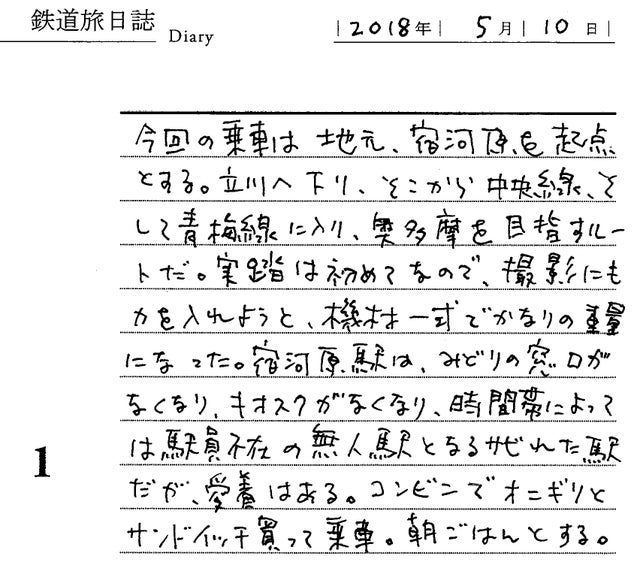 鉄道旅日誌 Diary |2018年| 5月| 10日|
今回の乗車は 地元、宿河原を起点
とする。立川へ下り、そこから中央線、そ
して青梅線に入り、奥多摩を目指すルー
トだ。実踏は初めてなので、撮影にも
力を入れようと、機材一式でかなりの重量
になった。宿河原駅は、みどりの窓口が
なくなり、キオスクがなくなり、時間帯によって
は駅員不在の無人駅となるサビれた駅
だが、愛着はある。コンビニでオニギリと
サンドイッチ買って乗車。朝ごはんとする。
1